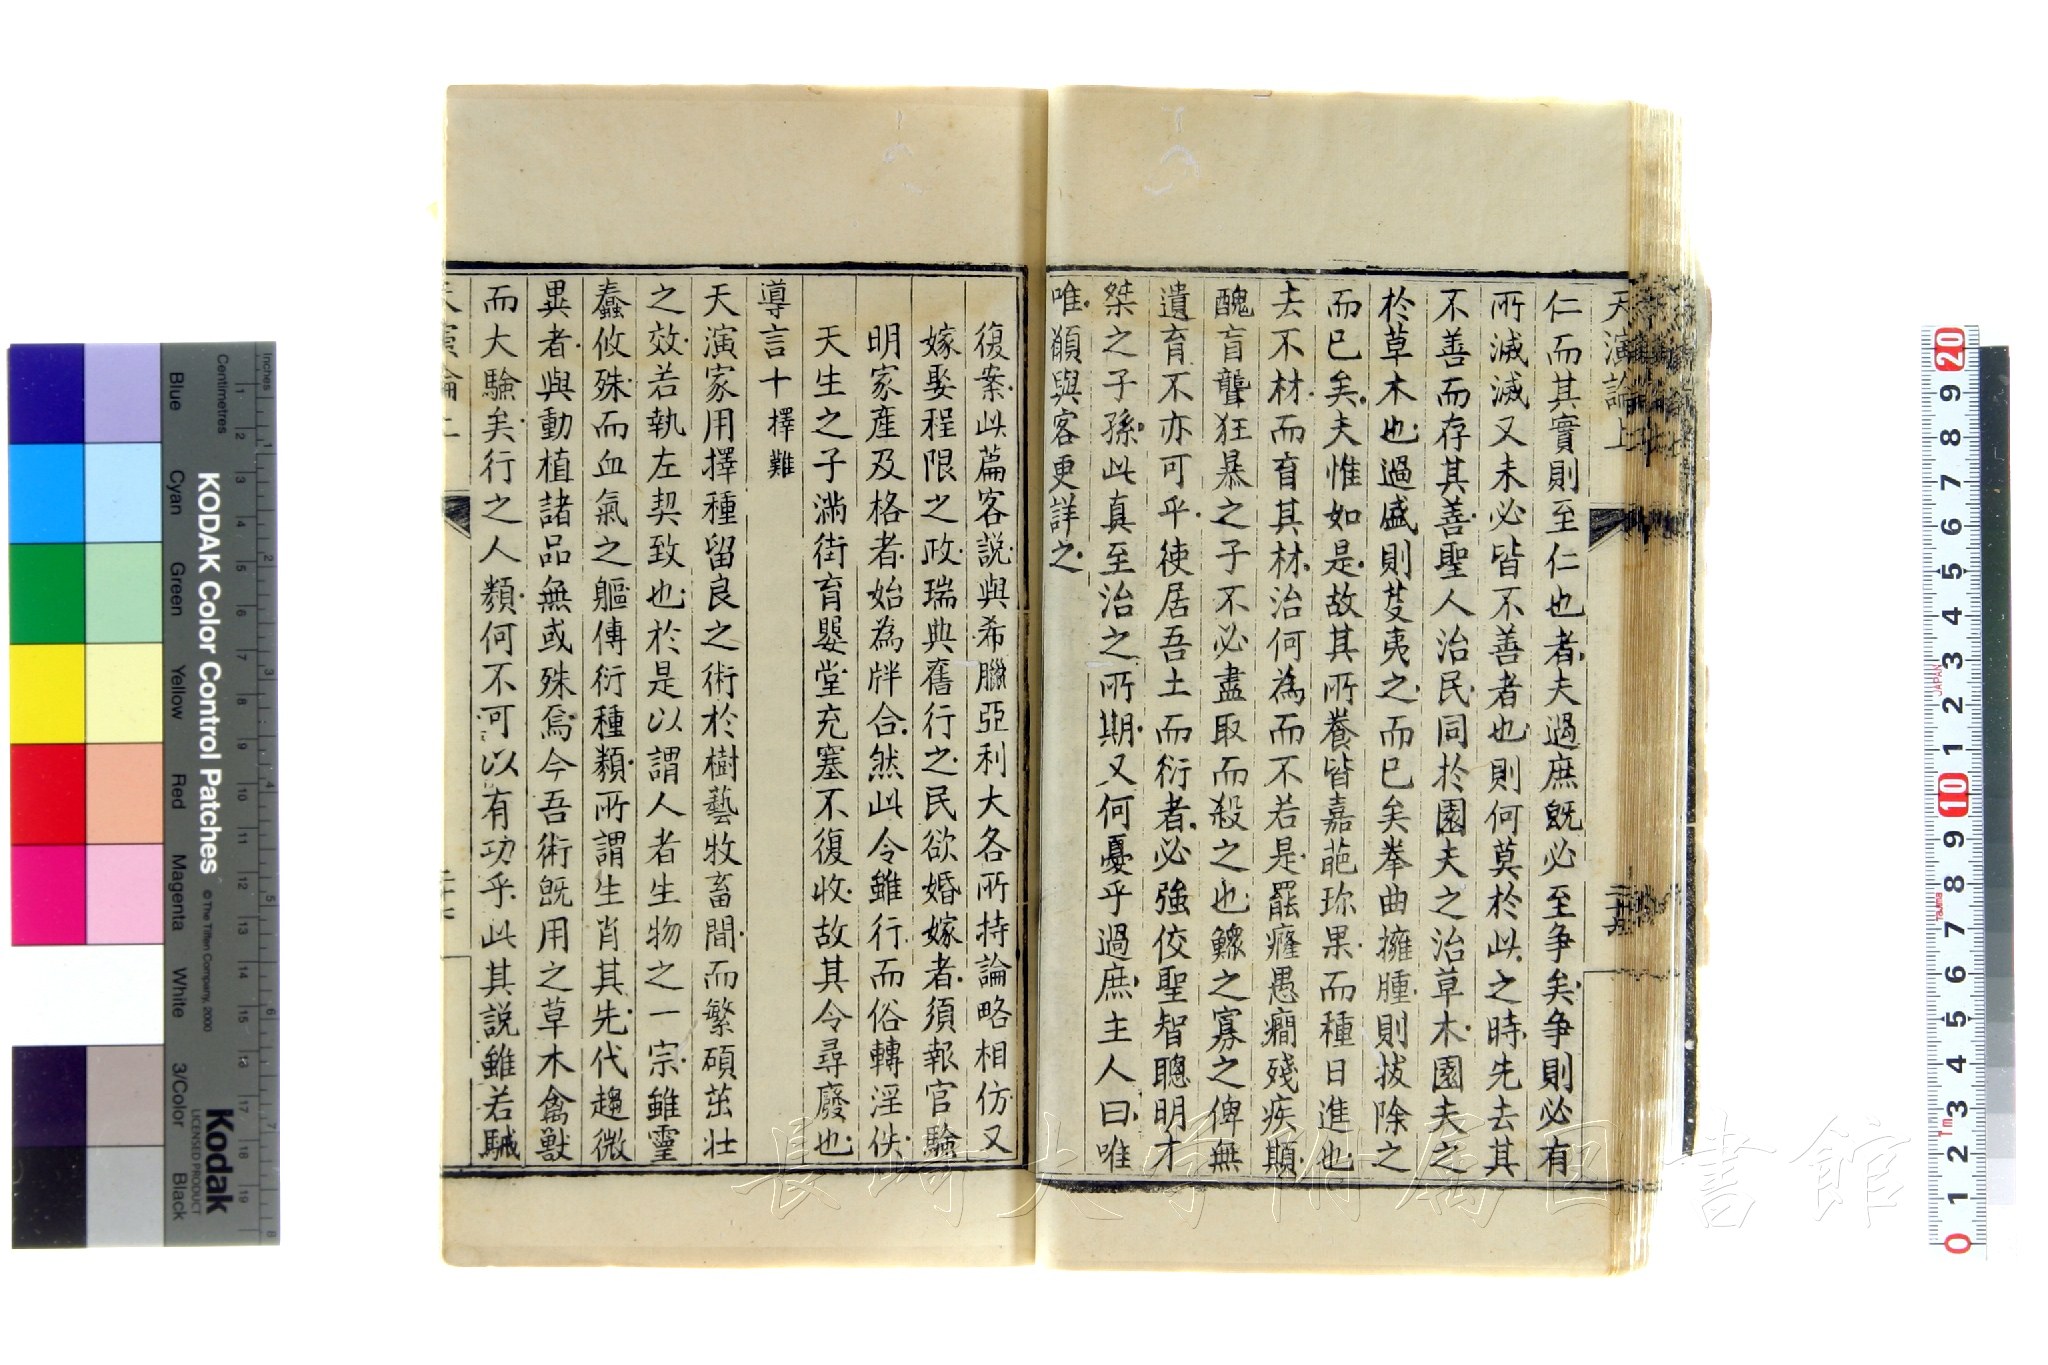 天演論上
仁而其實則至仁也者夫過庶旣必至争矣争則必有
所滅滅又未必皆不善者也則何莫於此之時先去其
不善而存其善聖人治民同於園夫之治草木園夫之
於草木也過盛則芟夷之而已矣拳曲擁腫則拔除之
而已矣夫惟如是故其所養皆嘉葩珍果而種日進也
去不材而育其材治何為而不若是罷癃愚癇殘疾顛
醜盲聾狂暴之子不必盡取而殺之也鰥之寡之俾無
遺育不亦可乎使居吾土而衍者必強佼聖智聰明才
桀之子孫此真至治之所期又何憂乎過庶主人曰唯
唯願與客更詳之
復案此篇客説與希臘亞利大各所持論略相仿又
嫁娶程限之政瑞典舊行之民欲婚嫁者須報官驗
明家產及格者始為牉合然此令雖行而俗轉淫佚
天生之子滿街育嬰堂充塞不復收故其令尋廢也
導言十擇難
天演家用擇種留良之術於樹藝牧畜間而繁碩茁壯
之效若執左契致也於是以謂人者生物之一宗雖靈
蠢攸殊而血氣之軀傳衍種類所謂生肖其先代趨微
異者與動植諸品無或殊焉今吾術旣用之草木禽獸
而大驗矣行之人類何不可以有功乎此其説雖若駴
KODAK Color Control Patches
© The Tiffen Company, 2000
Kodak
LICENSED PRODUCT
Inches
Centimetres
Blue
Cyan
Green
Yellow
Red
Magenta
White
3/Color
Black
JAPAN
Tajima
長崎大学附属図書館